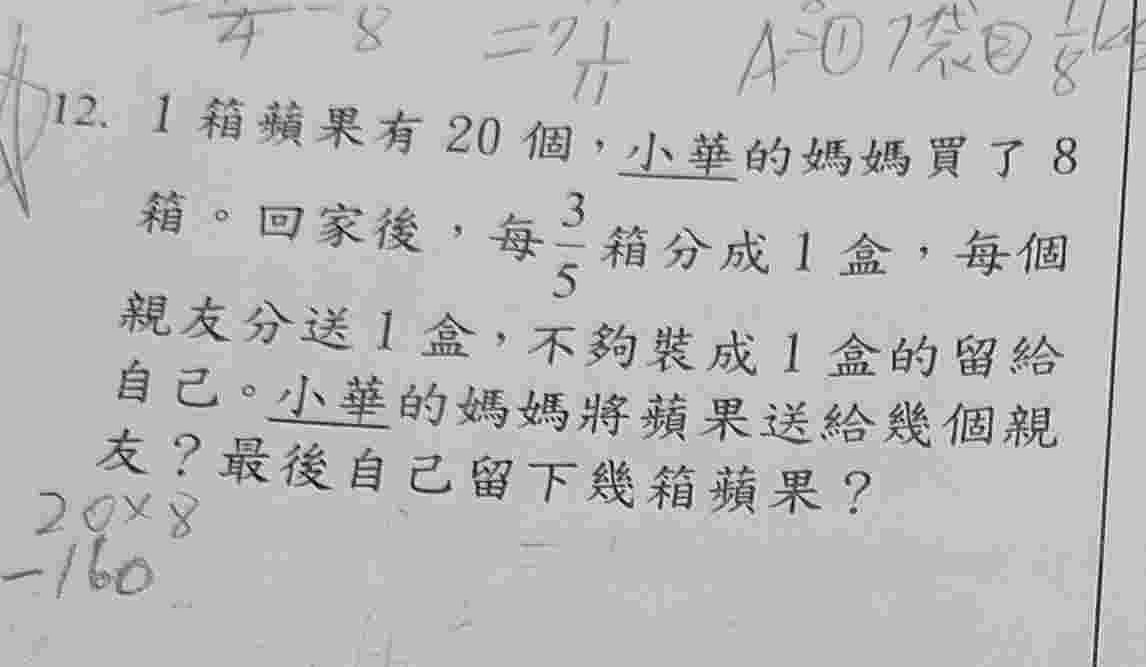 4 8 = 7 1/11 A=① 7袋② 1/8
12. 1 箱蘋果有 20 個，小華的媽媽買了 8
箱。回家後，每 3/5 箱分成 1 盒，每個
親友分送 1 盒，不夠裝成 1 盒的留給
自己。小華的媽媽將蘋果送給幾個親
友？最後自己留下幾箱蘋果？
20×8
=160